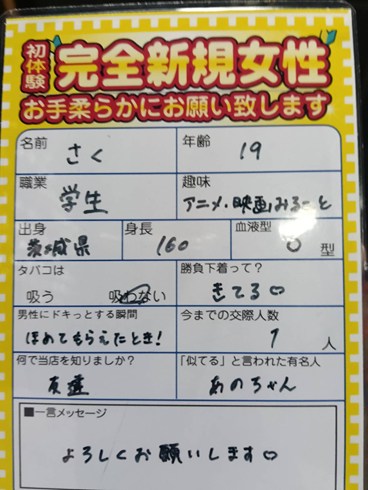 初体験
完全新規女性
お手柔らかにお願い致します
名前 さく
年齢 19
職業 学生
趣味 アニメ・映画みること
出身 茨城県
身長 160
血液型 O 型
タバコは 吸う 吸わない
勝負下着って? きてる♡
男性にドキっとする瞬間 ほめてもらえたとき!
今までの交際人数 1 人
何で当店を知りましたか? 友達
「似てる」と言われた有名人 あのちゃん
■一言メッセージ
よろしくお願いします♡